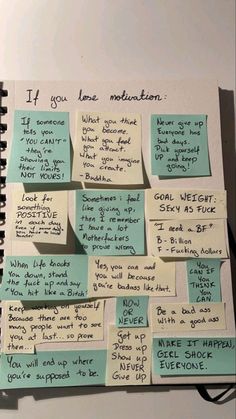 If you lose motivation:
If someone
tells you
"YOU CAN'T"
they're
Showing you
their limits
NOT YOURS!
What you think
you become.
What you feel
you attract.
What you imagine
you create.
-Buddha
Never give up
Everyone has
bad days.
Pick yourself
UP and keep
going!
Look for
something
POSITIVE
in each day
Even if some days
you have to look
harder
Sometimes i feel
like giving up,
then I remember
I have a lot
Motherfuckers
to prove wrong
GOAL WEIGHT:
SEXY AS FUCK
"I need a BF"
B - Billion
F - Fucking dollars
When life knocks
You down, stand
the fuck up and say
"You hit like a Bitch!"
Yes, you can and
you will because
you're badass like that.
YOU CAN
IF YOU
THINK
YOU CAN
Keep working on yourself
Because there are too
many people want to see
you at last... so prove
them...
NOW
OR
NEVER
Be a bad ass
with a good ass
You will end up where
you're supposed to be.
Get up
Dress up
Show up
NEVER
Give Up
MAKE IT HAPPEN,
GIRL SHOCK
EVERYONE.